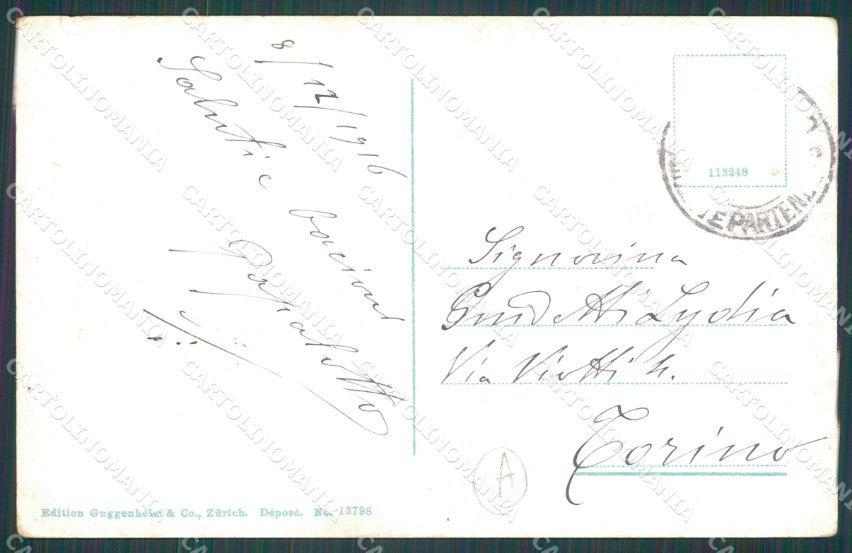 8/12/1916
Saluti e bacioni
Papalotto
113248
EPARTEN
Signorina
Lydia
Via Viotti 4.
Torino
A
Edition Guggenheim & Co., Zürich. Déposé. No. 13798
CARTOLINOMANIA